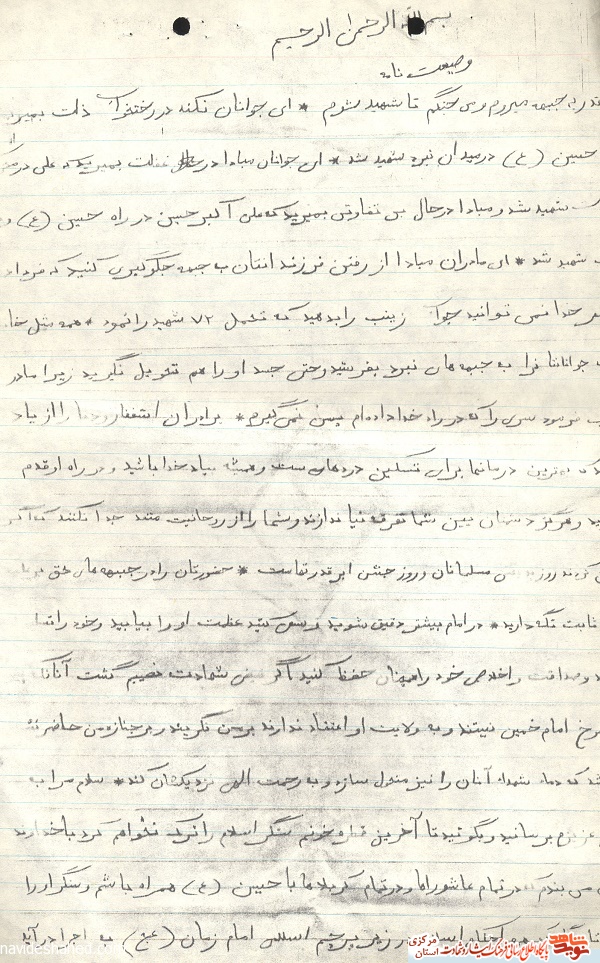 بسم الله الرحمن الرحیم
وصیت نامه
به جبهه میروم و می جنگم تا شهید شوم * ای جوانان نکند در رختخواب ذلت بمیرید
حسین (ع) در میدان نبرد شهید شد * ای جوانان مبادا در غفلت بمیرید که علی در
شهید شد و مبادا در حال بی تفاوتی بمیرید که علی اکبر حسین در راه حسین (ع) و
شهید شد * ای مادران مبادا از رفتن فرزندانتان به جبهه جلوگیری کنید که فردا در
خدا نمی توانید جواب زینب را بدهید که تحمل ۷۲ شهید را نمود * همه مثل
جوانانتانرا به جبهه های نبرد بفرستید و حتی جسد او را هم تحویل نگیرید زیرا مادر
فرمود سری را که در راه خدا داده ام پس نمی گیرم * برادران استغفار و دعا را از یاد
که بهترین درمانها برای تسکین دردهاست و همیشه بیاد خدا باشید و در راه او قدم
و هرگز دشمنان بین شما تفرقه نیاندازند و شما را از روحانیت متعهد جدا نکنند که اگر
کردند روز مسلمانان و روز جشن ابرقدرتهاست * حضورتان را در جبهه های حق
ثابت نگه دارید * در امام بیشتر دقیق شوید و سعی کنید عظمت او را بیابید و خود را
و صداقت و اخلاص خود را همچنان حفظ کنید اگر فیض شهادت نصیبم گشت آنانکه
امام خمینی نیستند و به ولایت او اعتقاد ندارند بر من نگریند و بر جنازه من حاضر
که دماء شهداء آنان را نیز متحول سازد و به رحمت الهی نزدیکشان کند * سلام مرا به
عزیزم برسانید و بگوئید تا آخرین قطره خونم سنگر اسلام را ترک نخواهم کرد با خدا
می بندم که در تمام عاشوراها و در تمام کربلاها با حسین (ع) همراه باشم و سنگر او را
احکام اسلام در زیر پرچم اسلامی امام زمان (عج) به اجرا در آید
navideshahed.com
نوید شاهد
پایگاه اطلاع رسانی فرهنگ ایثار و شهادت
استان مرکزی